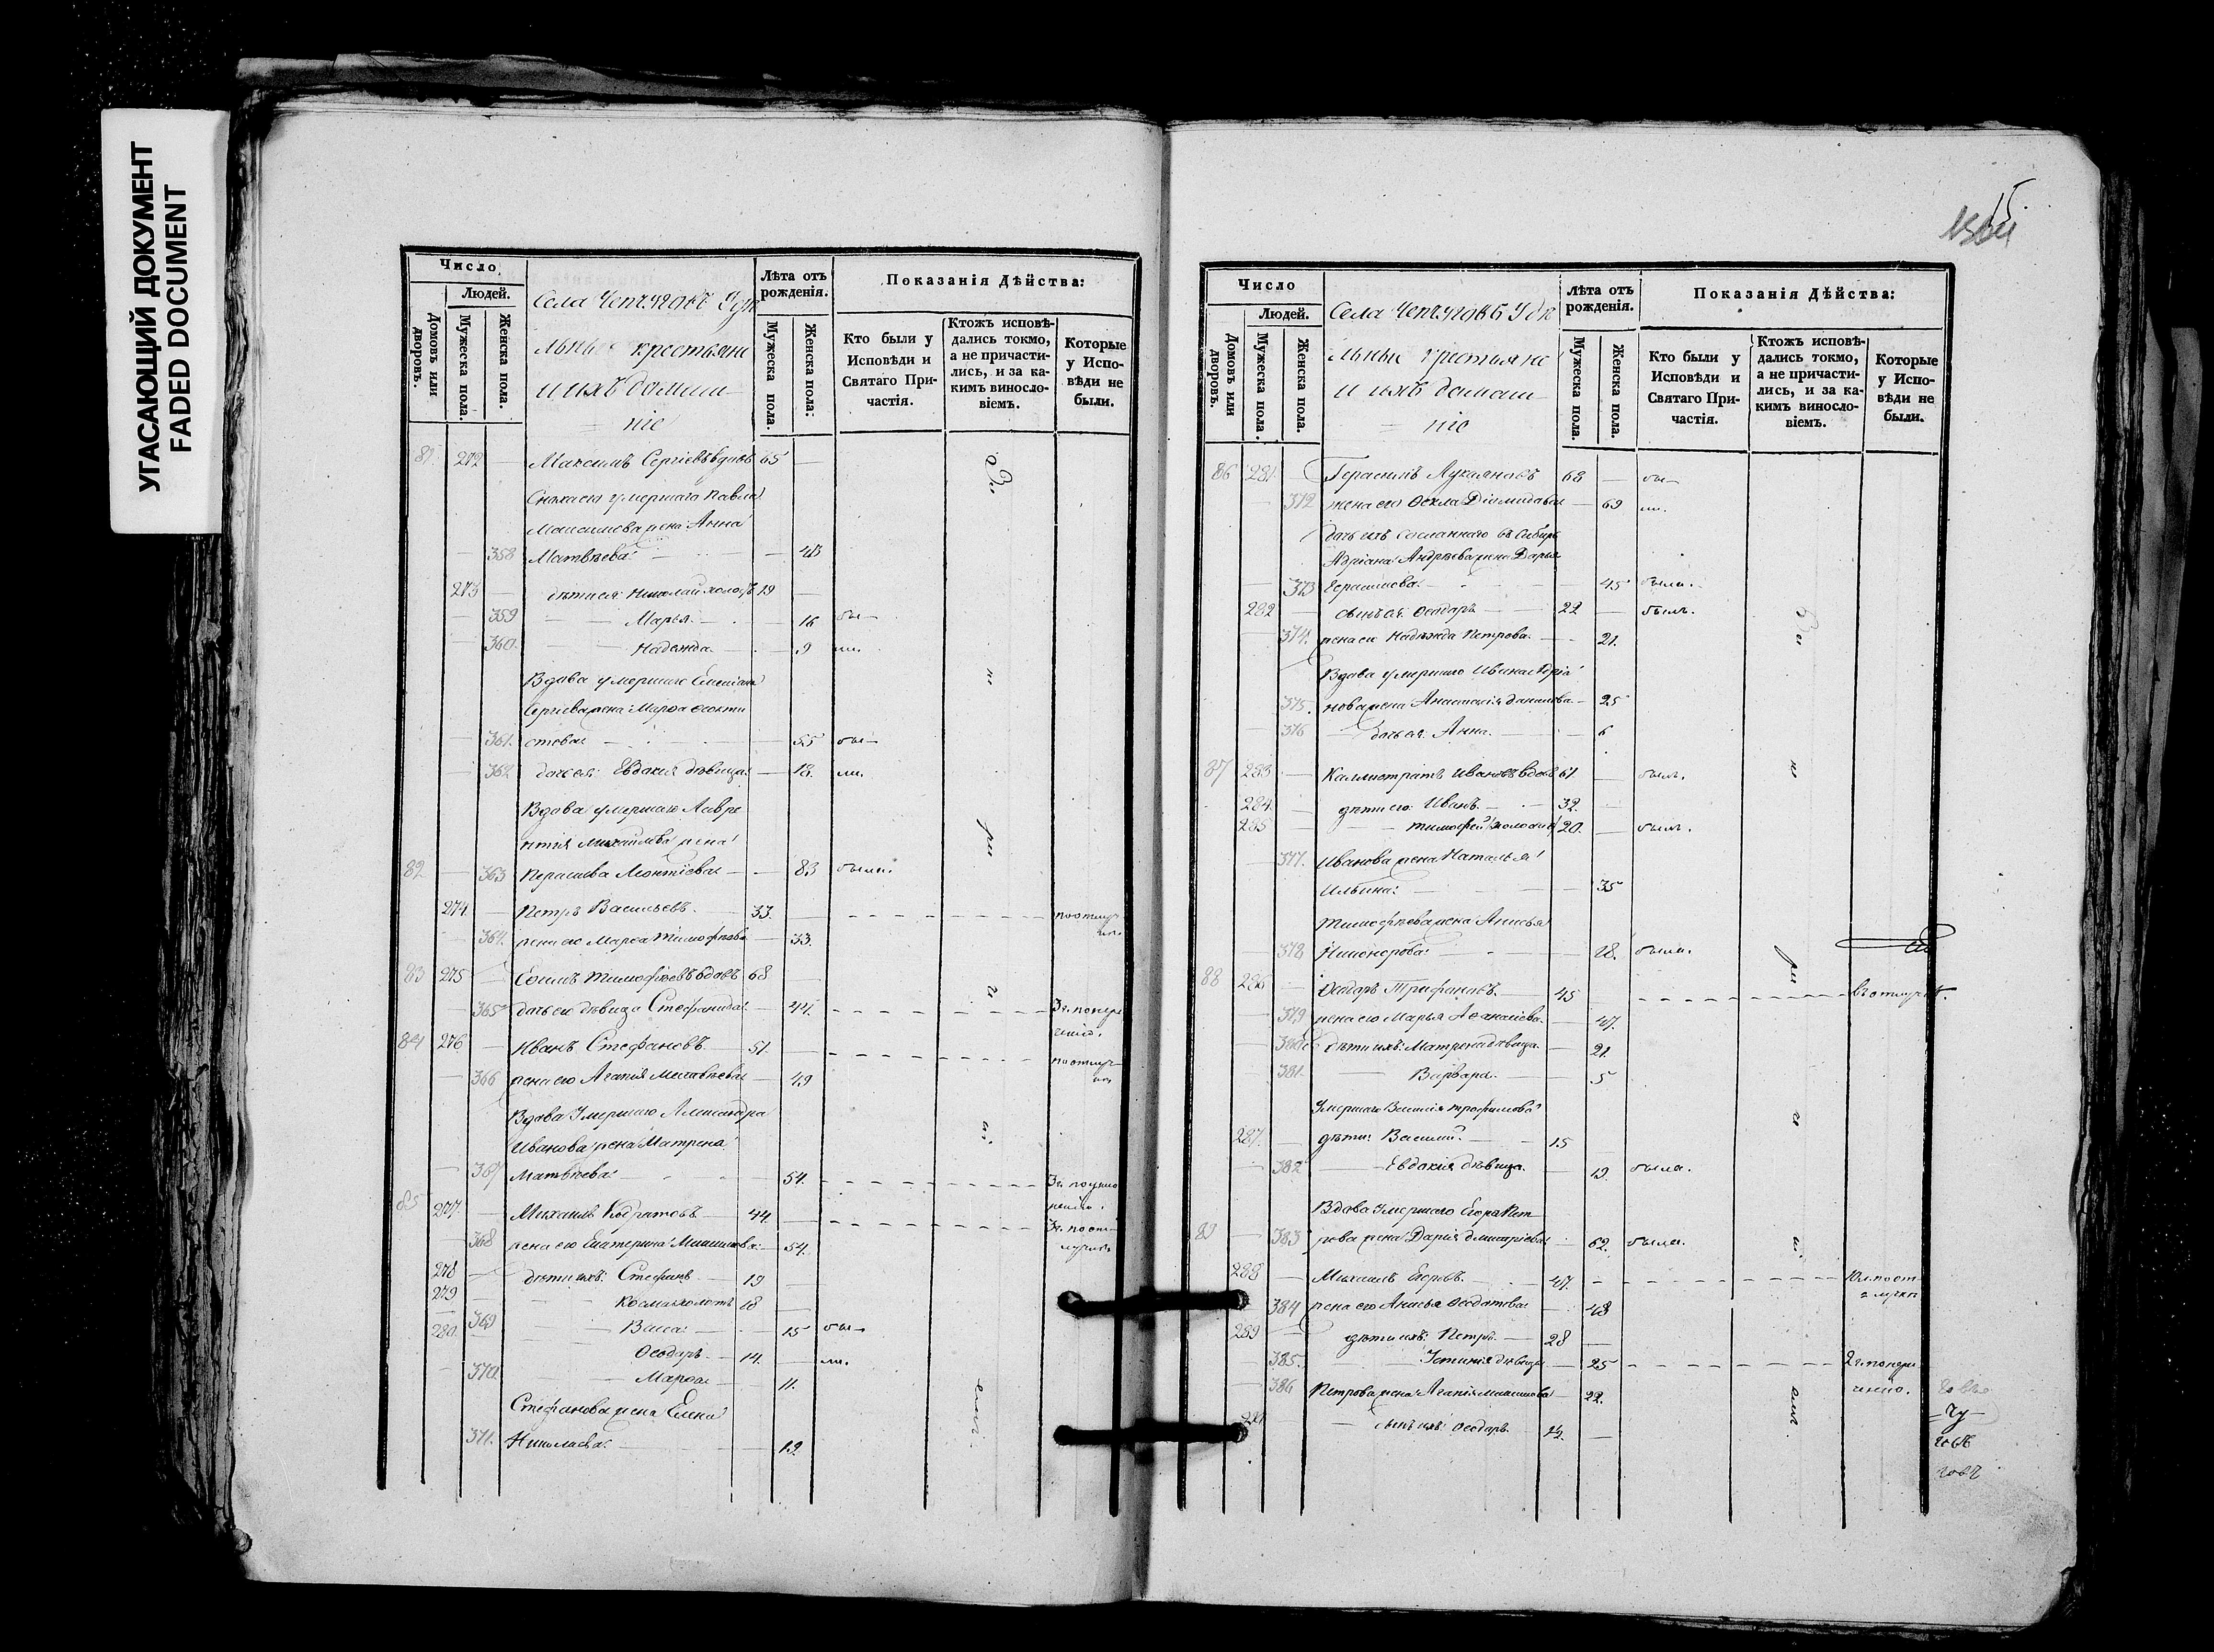 УГАСАЮЩИЙ ДОКУМЕНТ
FADED DOCUMENT
Число
Людей.
Домовъ или дворовъ.
Мужеска пола.
Женска пола.
Села Чепчуговъ Удѣ
льные крестьяне
и ихъ домаш
ніе
Лѣта отъ рожденія.
Мужеска пола.
Женска пола.
Показанія Дѣйства:
Кто были у Исповѣди и Святаго Причастія.
Ктожъ исповѣдались токмо, а не причастились, и за какимъ винословіемъ.
Которые у Исповѣди не были.
81 272 — Максимъ Сергіевъ вдовъ 65 —
Сноха его умершаго Павла
Максимова жена Анна
— 358 Матвѣева — 43
273 — дѣти ея: Николай холостъ 19 —
— 359 Марья — 16 бы—
— 360 Надежда — 9 ли.
Вдова умершаго
Сергіева жена Марѳа Ѳеокти
— 361. стова — 55 бы—
— 362 дочь ея: Евдокія дѣвица — 18. ли.
Вдова умершаго Лавре
нтія Михайлова жена
82 — 363 Парасковія Леонтіева — 83 была.
274. — Петръ Васильевъ 33. — по отлуч
— 364. жена его Марѳа Тимофѣева — 33.
83 275 — Ефимъ Тимофѣевъ вдовъ 68 —
365 дочь его дѣвица Стефанида — 44. 3 г. по нера
дѣнію.
84 276 — Иванъ Стефановъ 51. по отлуч
— 366 жена его Агапія Матвѣева — 49
Вдова Умершаго Александра
Иванова жена Матрена
— 367 Матвѣева 54. 3 г.
85 277 — Михаилъ Кодратовъ 44. 3 г. по от
лучкѣ
368 жена его Екатерина — 54.
278 — дѣти ихъ: Стефанъ 19 —
279 — Косма холостъ 18 —
369 Васса — 15 бы—
280 Ѳеодоръ 14. — ли.
370 Марѳа 11.
Стефанова жена Елена
371. Николаева 19.
15
Число
Людей.
Домовъ или дворовъ.
Мужеска пола.
Женска пола.
Села Чепчуговъ Удѣ
льные крестьяне
и ихъ домаш
ніе
Лѣта отъ рожденія.
Мужеска пола.
Женска пола.
Показанія Дѣйства:
Кто были у Исповѣди и Святаго Причастія.
Ктожъ исповѣдались токмо, а не причастились, и за какимъ винословіемъ.
Которые у Исповѣди не были.
86 281 — Герасимъ Лукьяновъ 68 — бы—
— 372 жена его Ѳекла Діомидова — 69 ли.
дочь ихъ сосланнаго въ Сибирь
Адріана Андреева жена Дарья
— 373 Герасимова — 45 была.
282 — сынъ ея: Ѳеодоръ 22 — былъ.
— 374. жена его Надежда Петрова — 21.
Вдова умершаго Ивана Адріа
375. нова жена Анастасія Данилова — 25
— 376 дочь ея: Анна — 6
87 283 — Каллистратъ Ивановъ вдовъ 61 — былъ.
284. — дѣти его: Иванъ 32. —
285 — Тимофей холостъ 20. — былъ.
— 377. Иванова жена Наталья
Ильина — 35
Тимофѣева жена Анисья
— 378 Никонорова — 18. была.
88 286 — Ѳеодоръ Трифановъ 45 — въ отлучкѣ.
— 379 жена его Марья Аѳанасіева — 47.
— 380 дѣти ихъ: Матрена дѣвица — 21.
— 381. Варвара — 5
Умершаго Василія Трофимова
287. — дѣти: Василій 15
— 382 Евдокія дѣвица 19. была.
Вдова Умершаго Егора Пет
89 — 383 рова жена Дарія Дмитріева 62. была.
288 — Михаилъ Егоровъ 47. по от
лучкѣ
— 384 жена его Анисья Ѳеодотова 48
289 — дѣти ихъ: Петръ 28 —
— 385. Устинія дѣвица — 25 2 г. по нера
дѣнію.
— 386 Петрова жена Агапія 22.
сынъ ихъ Ѳеодоръ —
Чу
говъ